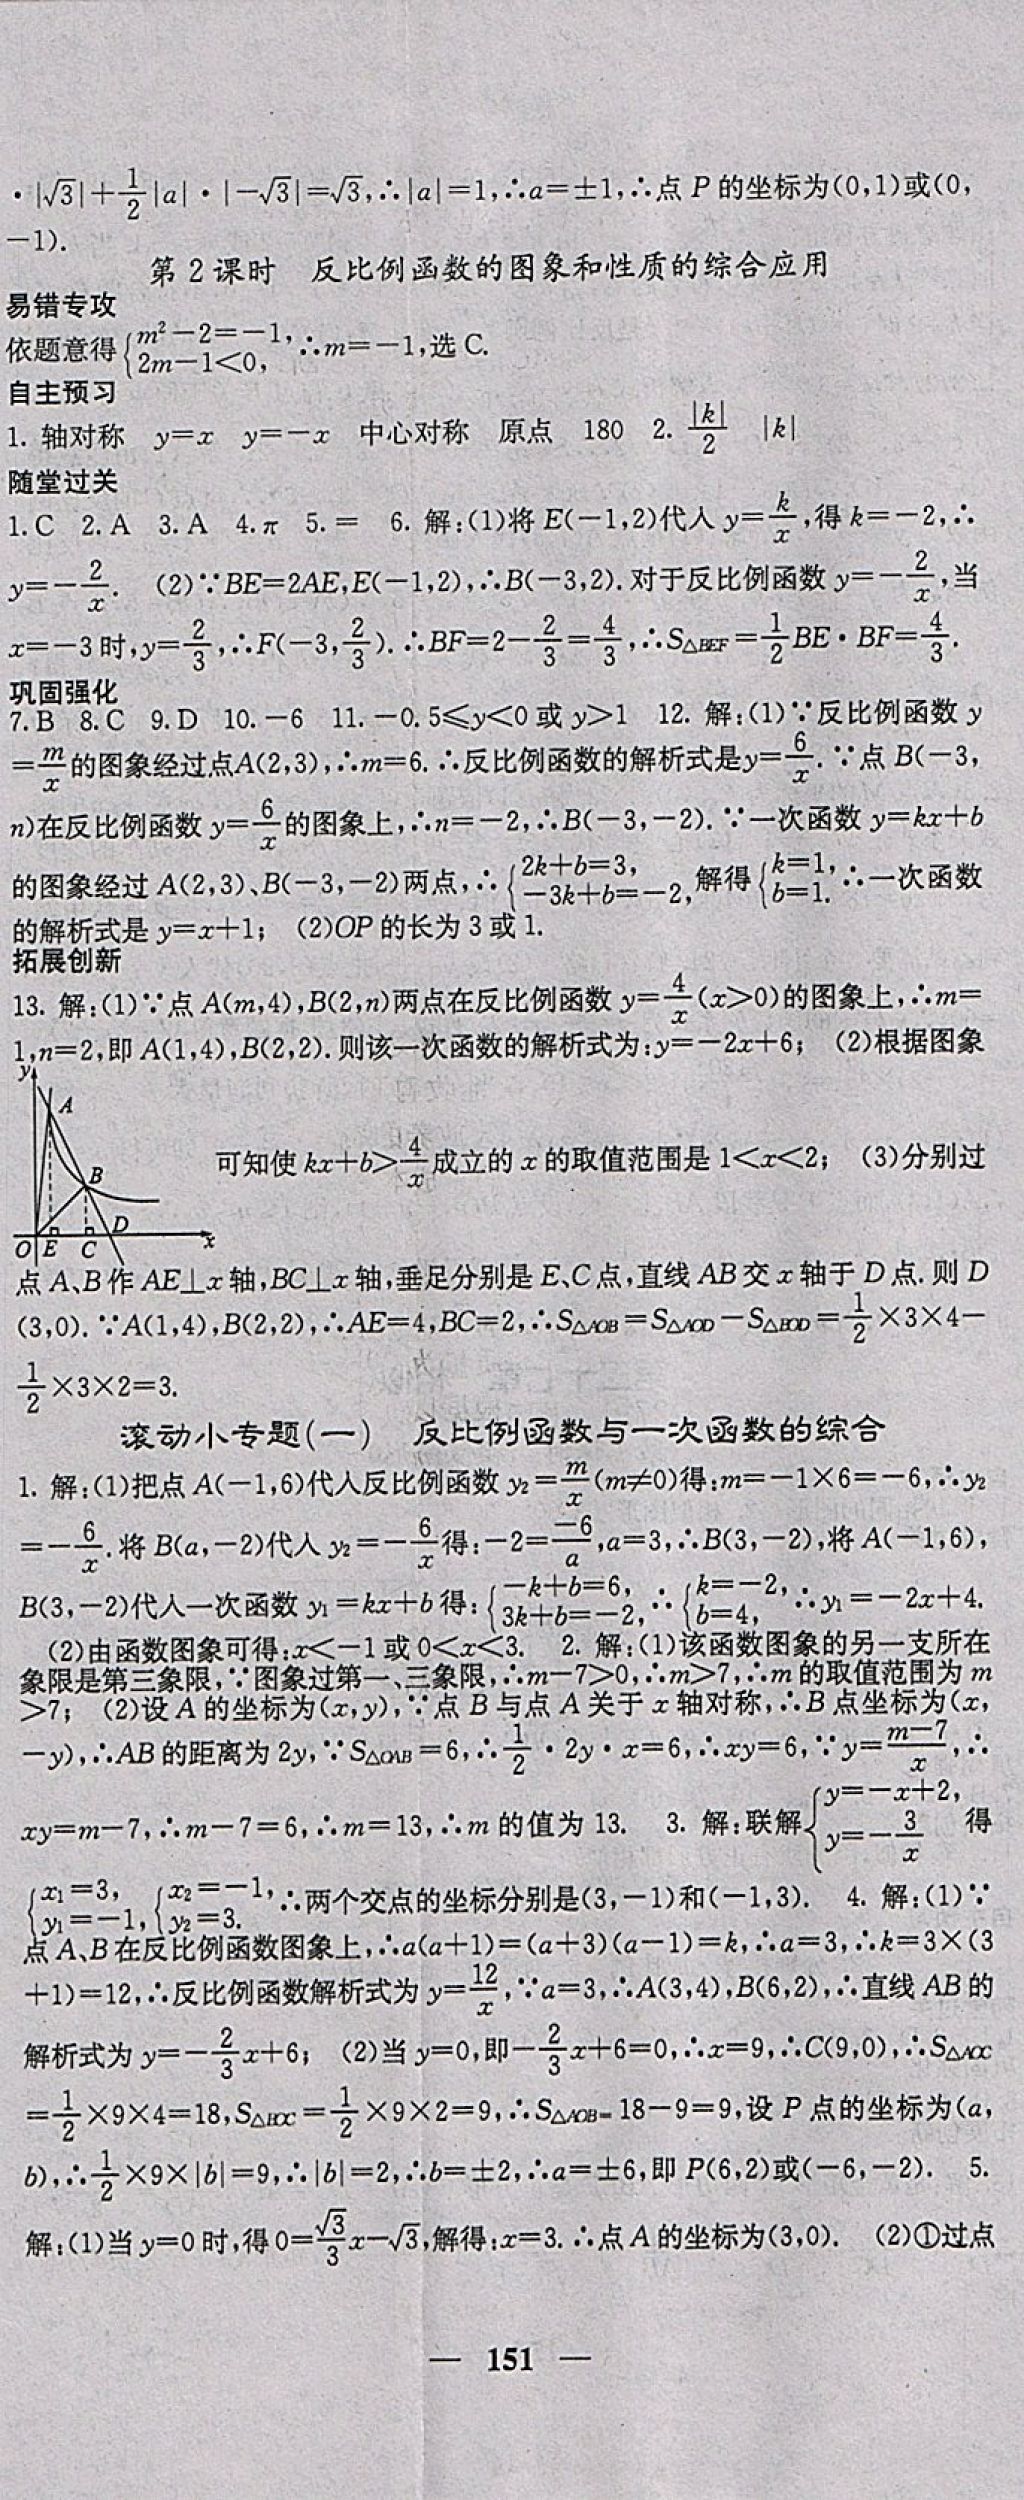 ·|√3|+1/2|a|·|-√3|=√3,∴|a|=1,∴a=±1,∴点 P 的坐标为(0,1)或(0,
-1).
第 2 课时　反比例函数的图象和性质的综合应用
易错专攻
依题意得{m²-2=-1, 2m-1<0, ∴m=-1,选 C.
自主预习
1. 轴对称　y=x　y=-x　中心对称　原点　180　2. |k|/2　|k|
随堂过关
1.C　2.A　3.A　4.π　5.=　6. 解:(1)将 E(-1,2)代入 y=k/x,得 k=-2,∴
y=-2/x.　(2)∵BE=2AE,E(-1,2),∴B(-3,2).对于反比例函数 y=-2/x,当
x=-3 时,y=2/3,∴F(-3,2/3).∴BF=2-2/3=4/3,∴S△BEF=1/2BE·BF=4/3.
巩固强化
7.B　8.C　9.D　10.-6　11.-0.5≤y<0 或 y>1　12. 解:(1)∵反比例函数 y
=m/x的图象经过点A(2,3),∴m=6.∴反比例函数的解析式是y=6/x.∵点 B(-3,
n)在反比例函数 y=6/x的图象上,∴n=-2,∴B(-3,-2).∵一次函数 y=kx+b
的图象经过 A(2,3)、B(-3,-2)两点,∴{2k+b=3, -3k+b=-2, 解得{k=1, b=1. ∴一次函数
的解析式是 y=x+1;　(2)OP 的长为 3 或 1.
拓展创新
13. 解:(1)∵点 A(m,4),B(2,n)两点在反比例函数 y=4/x(x>0)的图象上,∴m=
1,n=2,即 A(1,4),B(2,2).则该一次函数的解析式为:y=-2x+6;　(2)根据图象
y
A
B
D
O E C x
可知使 kx+b>4/x成立的 x 的取值范围是 1<x<2;　(3)分别过
点 A、B 作 AE⊥x 轴,BC⊥x 轴,垂足分别是 E、C 点,直线 AB 交 x 轴于 D 点.则 D
(3,0).∵A(1,4),B(2,2),∴AE=4,BC=2,∴S△AOB=S△AOD-S△BOD=1/2×3×4-
1/2×3×2=3.
滚动小专题(一)　反比例函数与一次函数的综合
1. 解:(1)把点 A(-1,6)代入反比例函数 y₂=m/x(m≠0)得:m=-1×6=-6,∴y₂
=-6/x.将 B(a,-2)代入 y₂=-6/x得:-2=-6/a,a=3,∴B(3,-2),将 A(-1,6),
B(3,-2)代入一次函数 y₁=kx+b 得:{-k+b=6, 3k+b=-2, ∴{k=-2, b=4, ∴y₁=-2x+4.
(2)由函数图象可得:x<-1 或 0<x<3.　2. 解:(1)该函数图象的另一支所在
象限是第三象限,∵图象过第一、三象限,∴m-7>0,∴m>7,∴m 的取值范围为 m
>7;　(2)设 A 的坐标为(x,y),∵点 B 与点 A 关于 x 轴对称,∴B 点坐标为(x,
-y),∴AB 的距离为 2y,∵S△OAB=6,∴1/2·2y·x=6,∴xy=6,∵y=m-7/x,∴
xy=m-7,∴m-7=6,∴m=13,∴m 的值为 13.　3. 解:联解{y=-x+2, y=-3/x 得
{x₁=3, y₁=-1, {x₂=-1, y₂=3. ∴两个交点的坐标分别是(3,-1)和(-1,3).　4. 解:(1)∵
点 A、B 在反比例函数图象上,∴a(a+1)=(a+3)(a-1)=k,∴a=3,∴k=3×(3
+1)=12,∴反比例函数解析式为 y=12/x,∵a=3,∴A(3,4),B(6,2),∴直线 AB 的
解析式为 y=-2/3x+6;　(2)当 y=0,即-2/3x+6=0,∴x=9,∴C(9,0),∴S△AOC
=1/2×9×4=18,S△BOC=1/2×9×2=9,∴S△AOB=18-9=9,设 P 点的坐标为(a,
b),∴1/2×9×|b|=9,∴|b|=2,∴b=±2,∴a=±6,即 P(6,2)或(-6,-2).　5.
解:(1)当 y=0 时,得 0=√3/3x-√3,解得:x=3.∴点 A 的坐标为(3,0).　(2)①过点
— 151 —